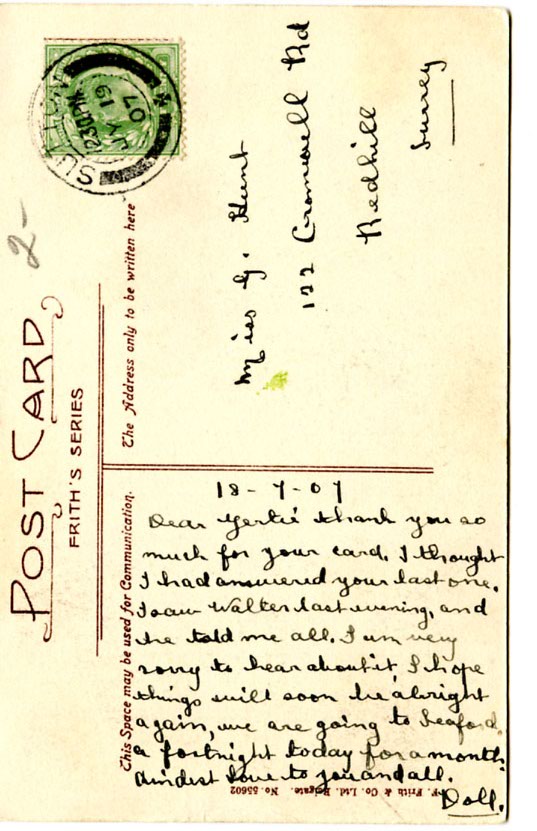 POST CARD
FRITH'S SERIES
2-
The Address only to be written here
SUTTON
1230 PM
JY 19
07
Miss G. Hunt
122 Cromwell Rd
Redhill
Surrey
This Space may be used for Communication.
18-7-07
Dear Gertie thank you so
much for your card. I thought
I had answered your last one.
I saw Walter last evening, and
he told me all. I am very
sorry to hear about it I hope
things will soon be alright
again, we are going to Seaford
a fortnight today for a month.
Kindest love to you and all.
Doll.
F. Frith & Co. Ltd. Reigate. No. 55602